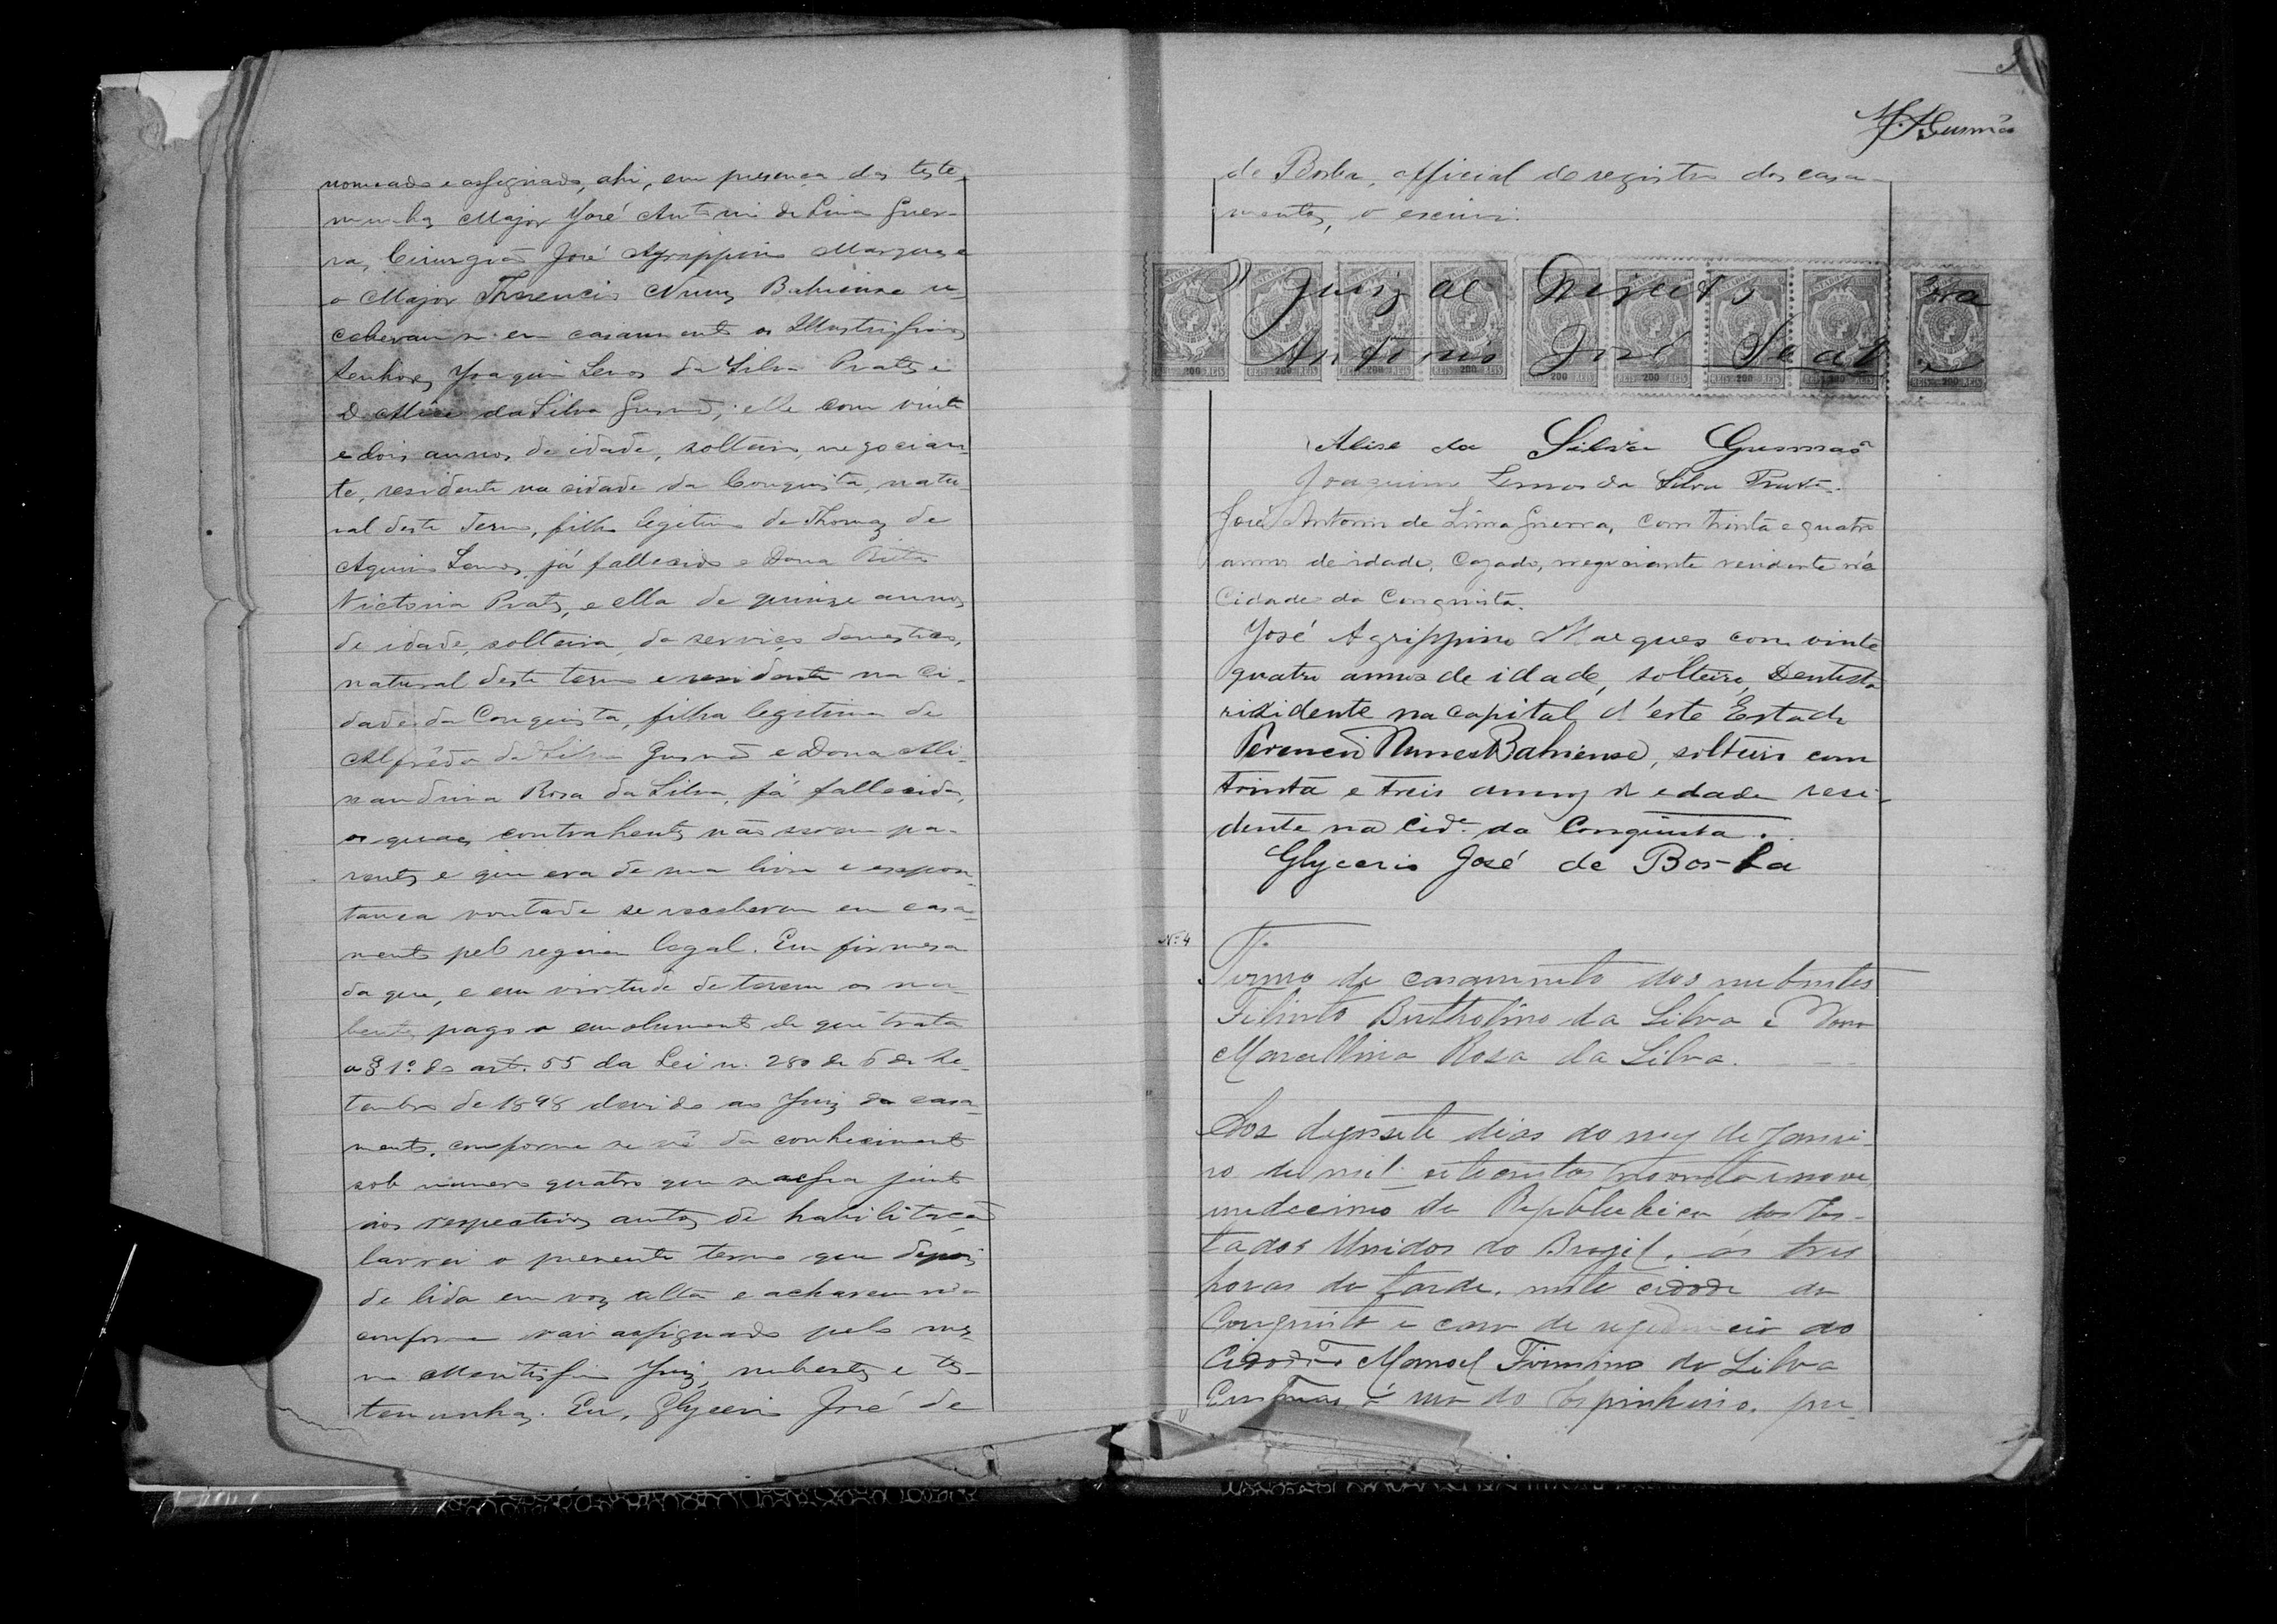 nomeado e assignado, ahi, em presença das teste-
munhas Major José Antonio de Lima Guer-
ra, Cirurgião José Agrippino Marques e
o Major Therencio Nunes Bahiense re-
ceberam se em casamento os Illustrissimos
Senhores Joaquim Lemos da Silva Prates e
D. Alice da Silva Gusmão; elle com vinte
e dois annos de idade, solteiro, negocian-
te, residente na cidade da Conquista, natu-
ral deste Termo, filho legitimo de Thomaz de
Aquino Lemos, já fallecido e Dona Rita
Victoria Prates, e ella de quinze annos
de idade, solteira, do serviço domestico,
natural deste termo e residente na Ci-
dade da Conquista, filha legitima de
Alfrêdo da Silva Gusmão e Dona
Rosa da Silva, já fallecida,
os quaes contrahentes não serem pa-
rentes e que era de sua livre e espon-
tanea vontade se receberem em casa-
mento pelo regimen legal. Em firmesa
do que, e em virtude de terem os nu-
bentes pago o emolumento de que trata
o § 1º do art. 55 da Lei n. 280 de 6 de Se-
tembro de 1898 devido ao Juiz do casa-
mento, conforme se vê do conhecimento
sob numero quatro que se acha junto
aos respectivos autos de habilitação
lavrei o presente termo que depois
de lido em voz alta e acharem
conforme vai assignado pelo mes-
mo Meritissimo Juiz, nubentes e tes-
temunhas. Eu, Glycerio José de
M. A. Gusmão
de Borba, official do registro dos casa-
mentos, o escrevi.
O Juiz de Direito
Antonio José Seab
Alise da Silva Gusmaõ
Joaquim Lemos da Silva Prates.
José Antonio de Lima Guerra, com trinta e quatro
annos de idade, Cazado, negociante residente ná
Cidade da Conquista.
José Agrippino Marques com vinte
quatro annos de idade, solteiro, Dentista
residente na capital d'este Estado
Terencio Nunes Bahiense, solteiro com
trinta e treis annos de edade resi-
dente na Cide. da Conquista.
Glycerio José de Borba
Nº 4
Termo de casamento dos nubentes
Filinto Bertholino da Silva e Dona
Marcellina Rosa da Silva.
Aos dezesete dias do mez de Janei-
ro de mil oitocentos noventa e nove,
undecimo da Republica dos Es-
tados Unidos do Brazil, ás tres
horas da tarde, nesta cidade da
Conquista e casa de residencia do
Cidadão Manoel Firmino da Silva
Gusmão, á rua do Espinheiro, pre-